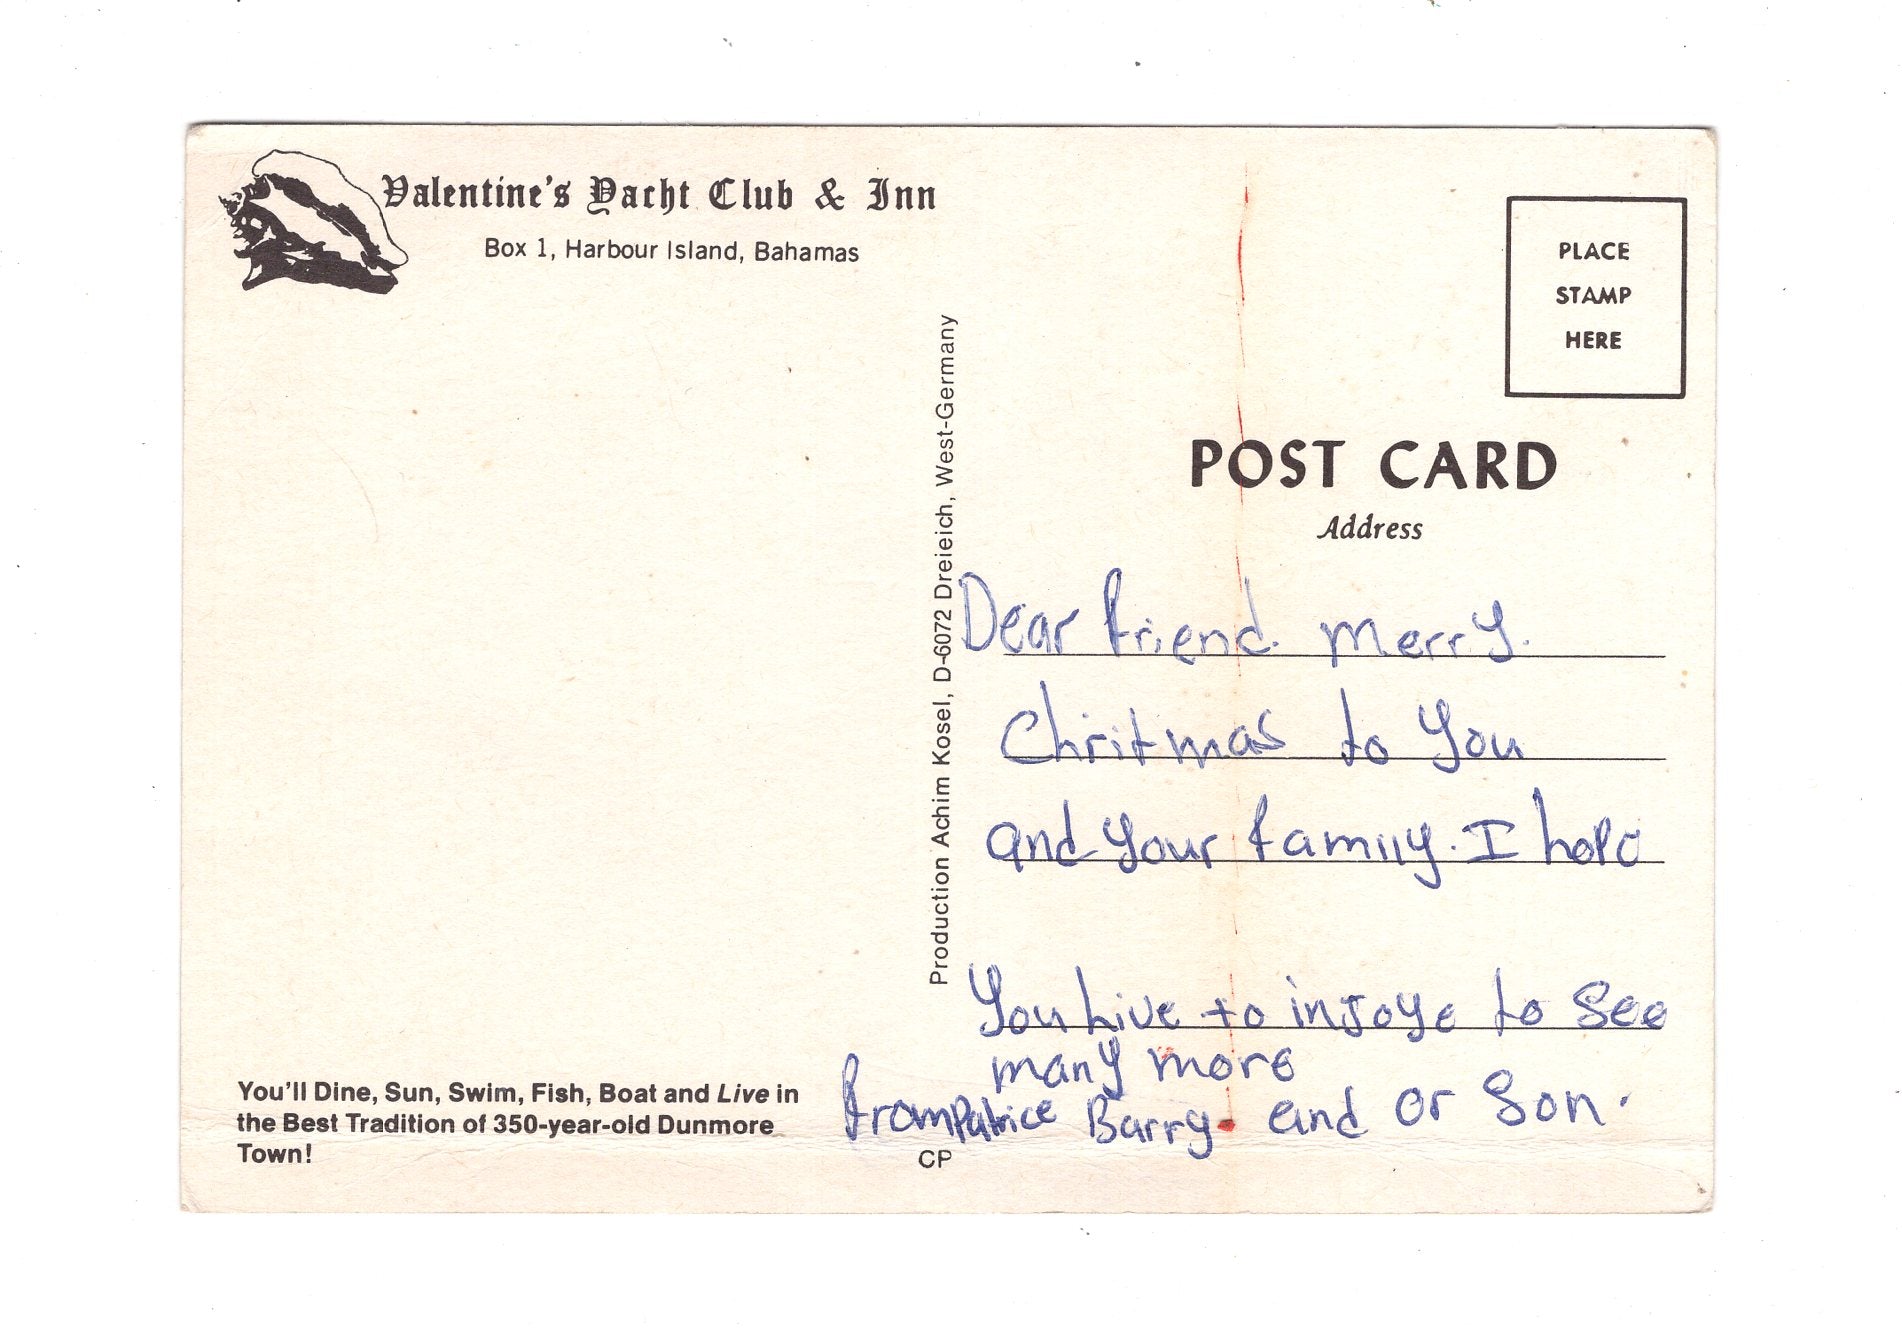 Valentine's Yacht Club & Inn
Box 1, Harbour Island, Bahamas
PLACE
STAMP
HERE
POST CARD
Address
Production Achim Kosel, D-6072 Dreieich, West-Germany
Dear friend. Merry.
Chritmas to you
and your family. I hope
You Live to injoye to See
many more
from Patrice Barry. and or Son.
You'll Dine, Sun, Swim, Fish, Boat and Live in
the Best Tradition of 350-year-old Dunmore
Town!
CP